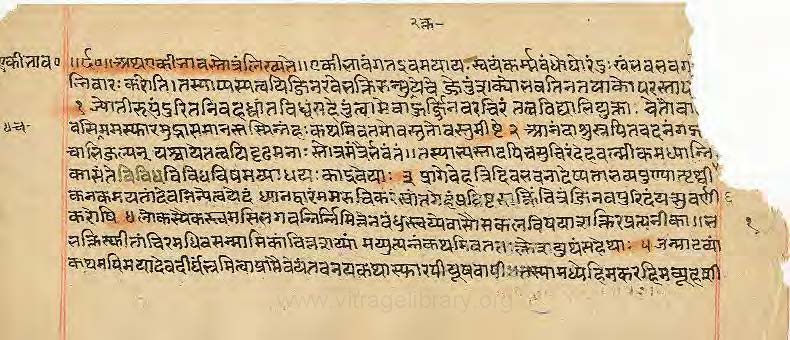 एकीभाव०
॥र्द०॥अथएकीभावस्तोत्रंलिख्यते॥एकीभावंगतइवमयायः स्वयंकर्मबंधोघोरंदुःखंभवभवग
न्निवारः करोति।तस्याप्यस्यत्वयिजिनरवेभक्तिरुन्मुक्तये चेज्जेतुंशक्योभवतिनतयाकोपरस्ताप
१ ज्योतीरूपंदुरितनिवहध्वांतविध्वंसहेतुंत्वामेवाहुर्जिनवरचिरं तत्वविद्याभियुक्ता. चेतोवा
वसिममस्फारमुद्भासमानस्तस्मिन्नंहः कथमिवतमोवस्तुतोवस्तुमीष्टे २ आनंदाश्रुस्नपितवदनंगद्ग
चाभिजल्पन् यश्चायेतत्वयिदृढमनाः स्तोत्रमंत्रैर्भवंतं॥तस्याभ्यस्तादपिचसुचिरंदेहवल्मीकमध्यान्नि
कास्यंतेविविधविषमव्याधयः काद्रवेयाः ३ प्रागेवेहत्रिदिवभवनादेष्यताभव्यपुण्यात्पृथ्वी
कनकमयतांदेवनिन्येत्वयेदं ध्यानद्वारंममरुचिकरंस्वांतगेहंप्रविष्टस्तत्किंचित्रंजिनवपुरिदंयत्सुवर्णी
करोषि ४ लोकस्यैकस्त्वमसिभगवन्निर्निमित्तेनबंधुस्त्वय्येवासौसकलविषयाशक्तिरप्रत्यनीका॥
भक्तिस्फीतांचिरमधिवसन्मामिकांचित्तशय्यां मय्युत्पन्नंकथमिवततःक्लेशयूथंसहेथाः ५ जन्माटव्यां
कथमपिमयादेवदीर्घंभ्रमित्वाप्राप्तैवेयंतवनयकथास्फारपीयूषवापी तस्यामध्येहिमकरहिमव्यूहशी
१
www.vitragelibrary.org